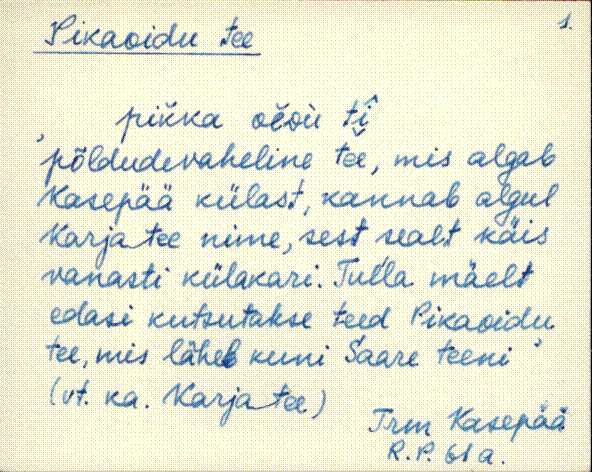 1.
Pikaoidu tee
pikka oi̯dù tî
"põldudevaheline tee, mis algab
Kasepää külast, kannab algul
Karja tee nime, sest sealt käis
vanasti külakari. Tulla mäelt
edasi kutsutakse teed Pikaoidu
tee, mis läheb kuni Saare teeni"
(vt. ka. Karja tee)
Trm Kasepää
R.P. 61 a.